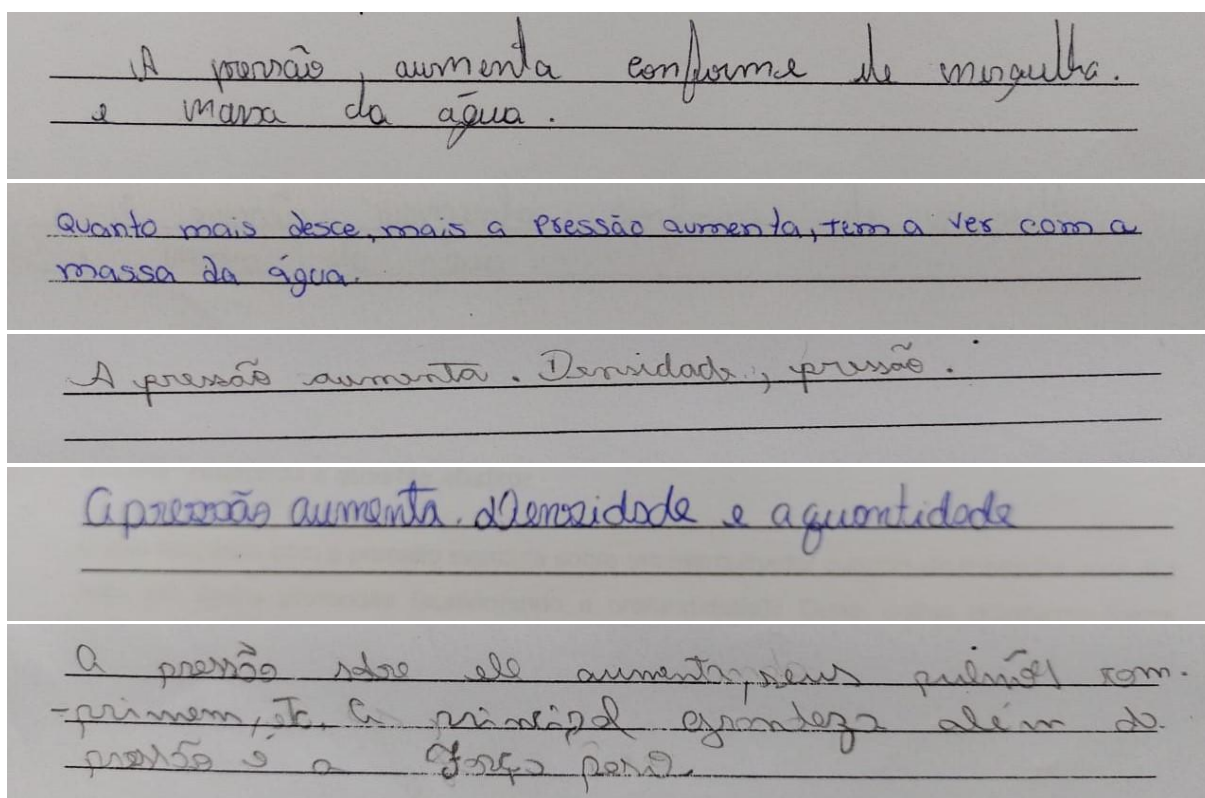 A pressão, aumenta conforme ele mergulha.
e massa da água.
Quanto mais desce, mais a pressão aumenta, tem a ver com a
massa da água.
A pressão aumenta. Densidade, pressão.
A pressão aumenta. Densidade e a quantidade
A pressão sobre ele aumenta, seus pulmões com-
-primem, etc. A principal grandeza além da
pressão é a força peso.